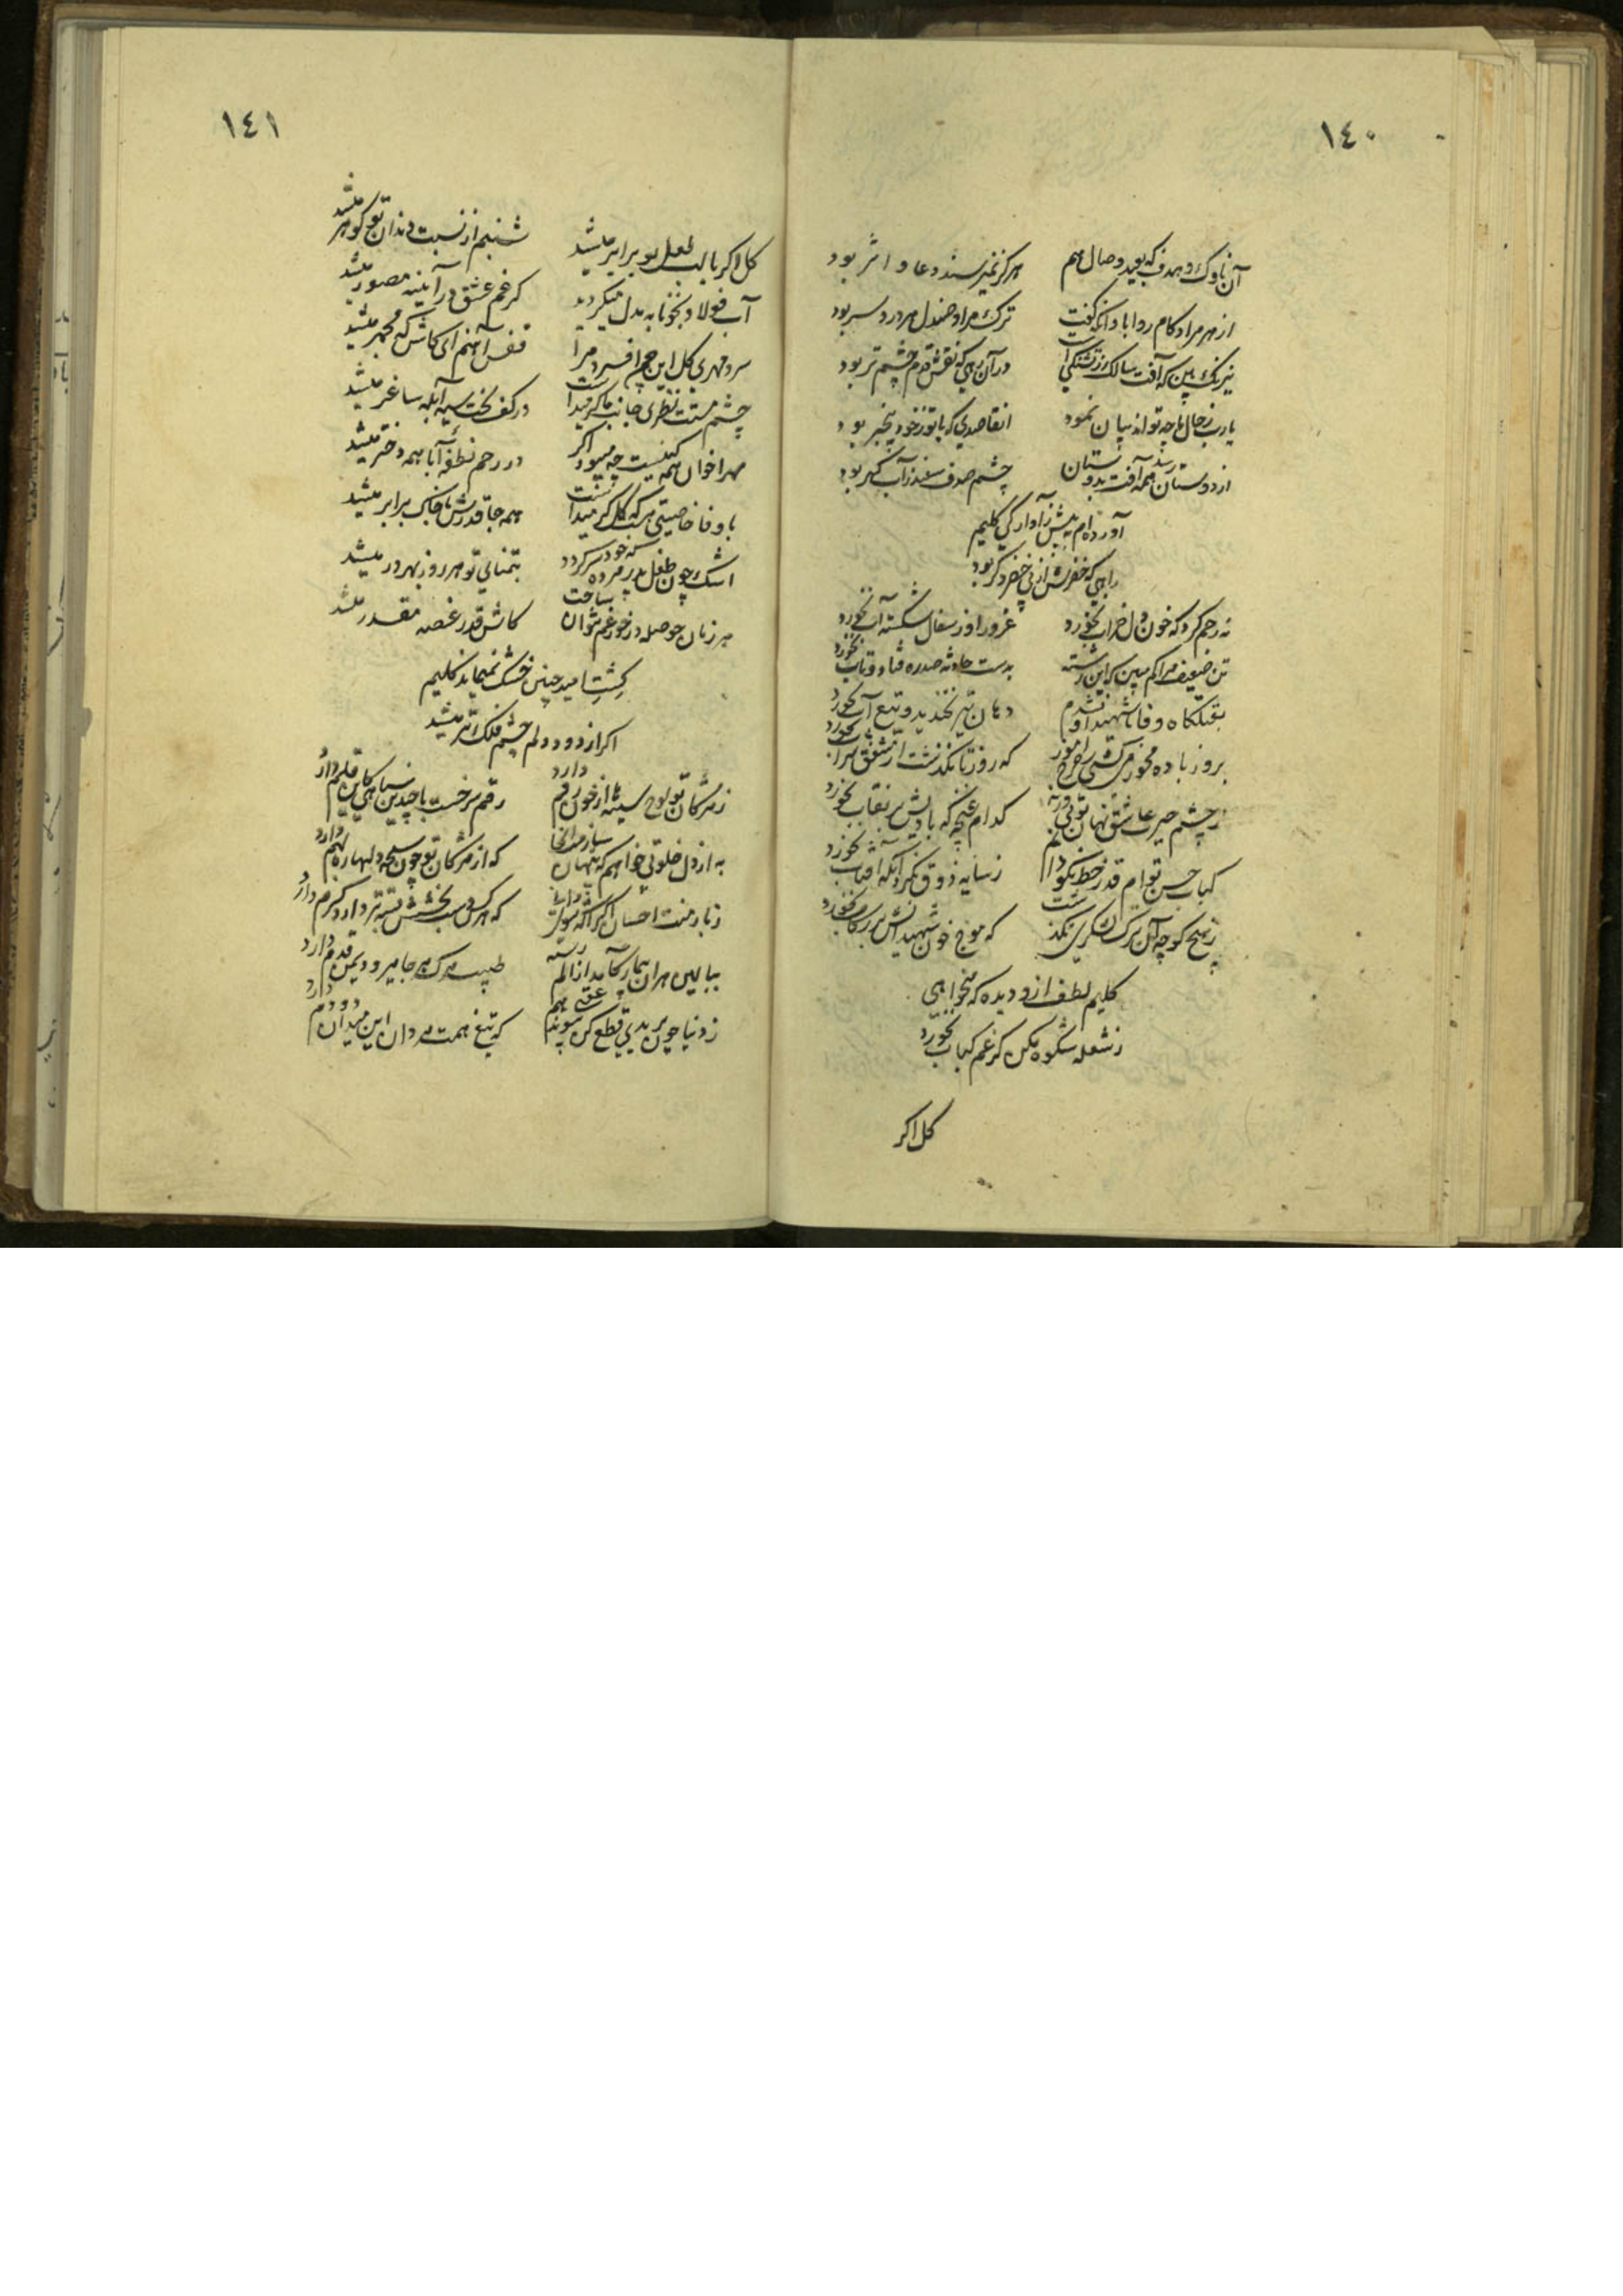 ١٤٠
آن ناوک و هدف که بعید وصال هم هرکز نمیرسند دعا و اثر بود
از هر مراد کام روا باد آنکه کفت ترک مراد صندل هر درد سر بود
نیرنک بین که آفت سالک ز تشنکی است در آن رهی که نقش قدم چشم تر بود
یارب ز حال ما چه تواند بیان نمود آنقاصدی که باتو ز خود بیخبر بود
از دوستان همه آفت بدوستان رسد چشم صدف سفید ز آب کهر بود
آورده ام به پیش ز آوارکی کلیم
راهی که خضرش از پی خضر دکر بود
نه رحم کرد که خون دل خراب نخورد غرور او ز سفال شکسته آب نخورد
تن ضعیف مرا کم مبین که این رشته بدست حادثه صد ره فتاد و تاب نخورد
بقتلکاه وفا تا شهید او نشدم دهان تیر نخندید و تیغ آب نخورد
بروز باده مخور میکشی ز چرخ آموز که روز تا نکذشت از شفق شراب نخورد
ز چشم حیرت عاشق نهان توئی ورنه کدام غنچه که بادیش بر نقاب نخورد
کباب حسن توام قدر خط نکو دانم ز سایه ذوق نکرد آنکه آفتاب نخورد
ز هیچ کوچه آن ترک لشکری نکذشت که موج خون شهیدانش بر رکاب نخورد
کلیم لطف از و دیده که میخواهی
ز شعله شکوه مکن کر غم کباب نخورد
کل اکر
١٤١
کل اکر با لب لعل تو برابر میشد شبنم از نسبت دندان تو کوهر میشد
آب فولاد بخونابه بدل میکردید کر غم عشق در آینه مصور میشد
سرد مهری کل این چمن افسرد مرا قفس آهنم ای کاش که مجمر میشد
چشم مستت نظری جانب ما کر میداشت در کف بخت سیه آبله ساغر میشد
مهر اخوان همه کینست چه میبود اکر در رحم نطفه آبا همه دختر میشد
با وفا خاصیتی هست که کل کر میداشت همه جا قدرش با خاک برابر میشد
اشک چون طفل پدر مرده نه خود سر کردد بتمنای تو هر روز بهر در میشد
هر زمان حوصله در خور غم نتوان ساخت کاش قدر غصه مقدر میشد
کشت امید چنین خشک نمیماند کلیم
اکر از دود دلم چشم فلک تر میشد
ز مژکان تو لوح سینه ها از خون رقم دارد رقم سرخست با چندین سیاهی کاین قلم دارد
به از دل خلوتی خواهم که پنهان سازمت آنجا که از مژکان تو چون سبحه دلها ره بهم دارد
ز بار منت احسان اکر آکه شوی دانی که هر کس دست بخشش بسته تر دارد کرم دارد
ببالین هر آن بیمار کآمد از الم رسته طبیب مرک هر جا میرود یمن قدم دارد
ز دنیا چون بریدی قطع کن پیوند عقبی هم که تیغ همت مردان این میدان دو دم دارد